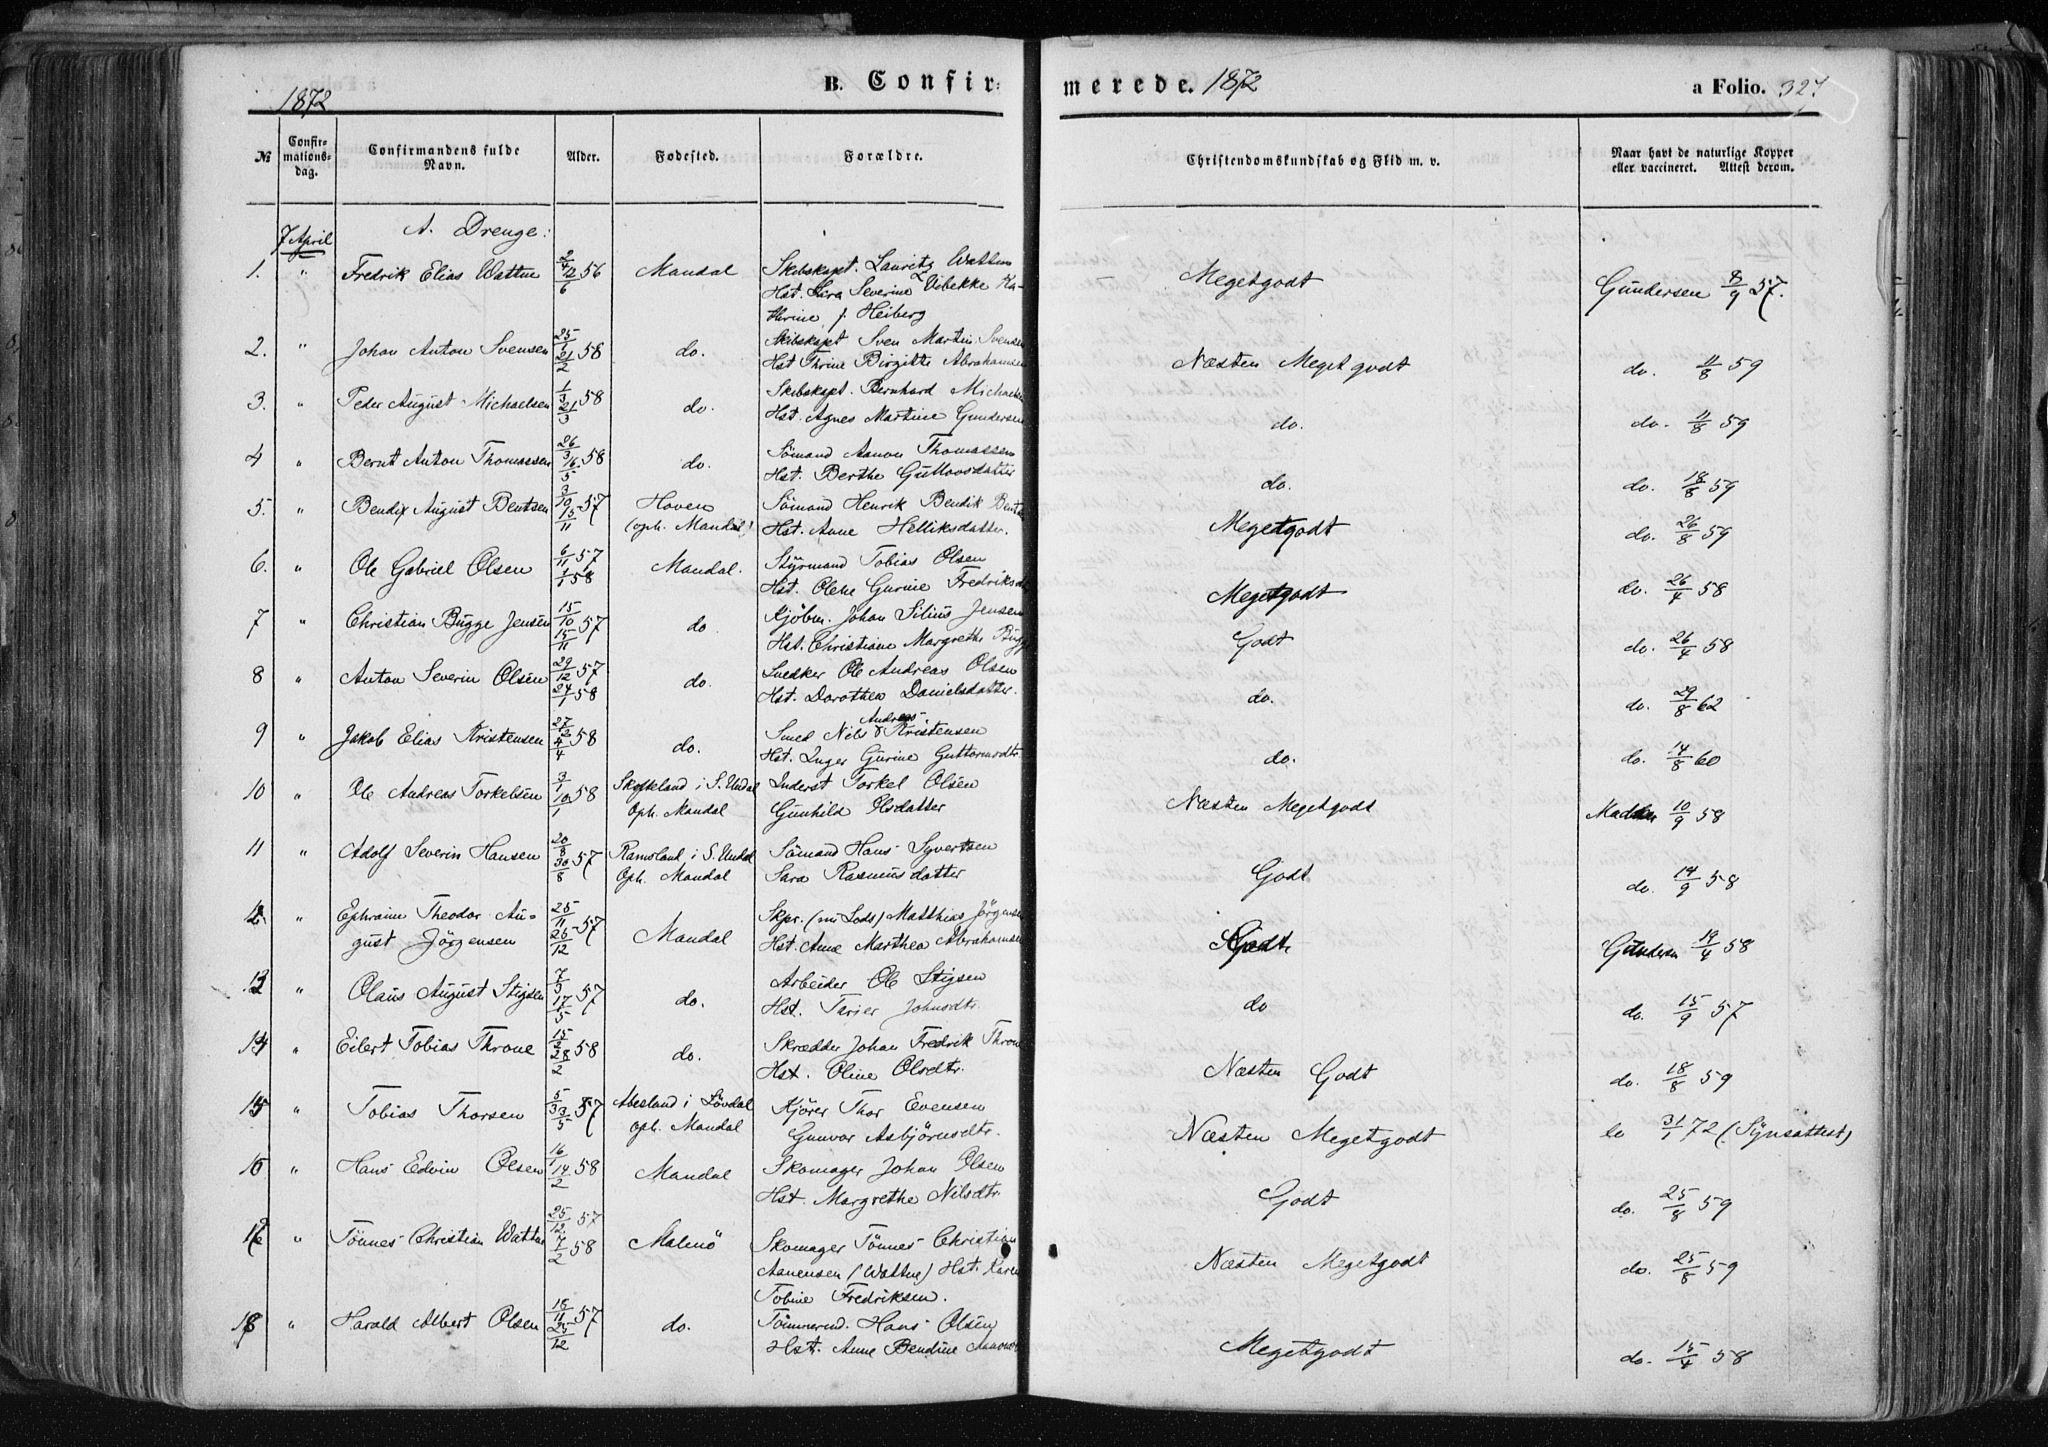 1872
B. Confirmerede. 1872
a Folio. 327
№
Confirmationsdag.
Confirmandens fulde Navn.
Alder.
Fødested.
Forældre.
Christendomskundskab og Flid m. v.
Naar havt de naturlige Kopper eller vaccineret. Attest derom.
7 April
A. Drenge:
1. " Fredrik Elias Wattne 56 Mandal Skibskapt. Lauritz Wattne Megetgodt Gundersen 8/9 57.
Hst. Sara Severine Vibekke Ka-
thrine f. Heiberg
2. " Johan Anton Svensen 25/1 21/2 58 do. Skibskapt Sven Martin Svensen Næsten Meget godt do. 11/8 59
Hst Thrine Birgitte Abrahamsen
3. " Peder August Michaelsen 1/3 21/3 58 do. Skibskapt. Bernhard Michaelsen do. do. 11/8 59
Hst. Agnes Martine Gundersen
4 " Bernt Anton Thomassen 26/3 16/5 58 do. Sömand Aanon Thomassen do. do. 18/8 59
Hst. Berthe Guttormsdatter
5. " Bendix August Bentsen 3/10 15/11 57 Hoven Sömand Henrik Bendik Bentsen Megetgodt do. 26/8 59
(oph. Mandal) Hst. Anne Helliksdatter.
6. " Ole Gabriel Olsen 6/11 57 1/1 58 Mandal. Styrmand Tobias Olsen Megetgodt do. 26/4 58
Hst. Olene Gurine Fredriksd
7 " Christian Bugge Jensen 15/10 15/11 57 do Kjöbm. Johan Silius Jensen Godt do. 26/4 58
Hst. Christiane Margrethe Bugge
8 " Anton Severin Olsen 29/12 57 24/1 58 do. Snedker Ole Andreas Olsen do. do. 29/8 62
Hst. Dorothea Danielsdatter.
9 " Jakob Elias Kristensen 27/2 4/4 58 do. Smed Nils Andreas Kristensen do. do. 14/8 60
Hst. Inger Gurine Guttormsdtr.
10 " Ole Andreas Torkelsen 3/1 10/1 58 Skofteland i S. Undal Inderst Torkel Olsen Næsten Megetgodt 10/9 58
Oph. Mandal Gunhild Olsdatter
11 " Adolf Severin Hansen 20/8 30/8 57 Ramsland i S. Undal Sömand Hans Syvertsen Godt do. 14/9 58
Oph. Mandal Sara Rasmusdatter
12. " Ephraim Theodor Au- 25/11 26/12 57 Mandal Skpr. (nu Lods) Matthias Jörgensen Godt. Gundersen 19/4 58
gust Jörgensen Hst. Anne Marthea Abrahamsen
13 " Olaus August Stigsen 7/5 17/5 57 do. Arbeider Ole Stigsen do do. 15/9 57
Hst. Tarier Johnsdtr.
14 " Eilert Tobias Throne 15/2 28/2 58 do. Skrædder Johan Fredrik Throne Næsten Godt do. 18/8 59
Hst. Oline Olsdtr.
15 " Tobias Thorsen 5/3 3/5 57 Abesland i Lövdal Kjörer Thor Evensen Næsten Megetgodt do 31/1 72 (Synsattest)
Oph. Mandal Gunvor Asbjörnsdtr.
16 " Hans Edvin Olsen 16/1 14/2 58 Mandal Skomager Johan Olsen Godt do. 25/8 59
Hst. Margrethe Nilsdtr.
17 " Tönnes Christian Wattne 25/12 57 7/2 58 Malmö Skomager Tönnes Christian Næsten Megetgodt do. 25/8 59
Aanensen (Wattne) Hst. Karen
Tobine Fredriksen.
18 " Harald Albert Olsen 18/11 57 do. Tömmermd. Hans Olsen Megetgodt do. 15/4 58
Hst. Anne Bendine